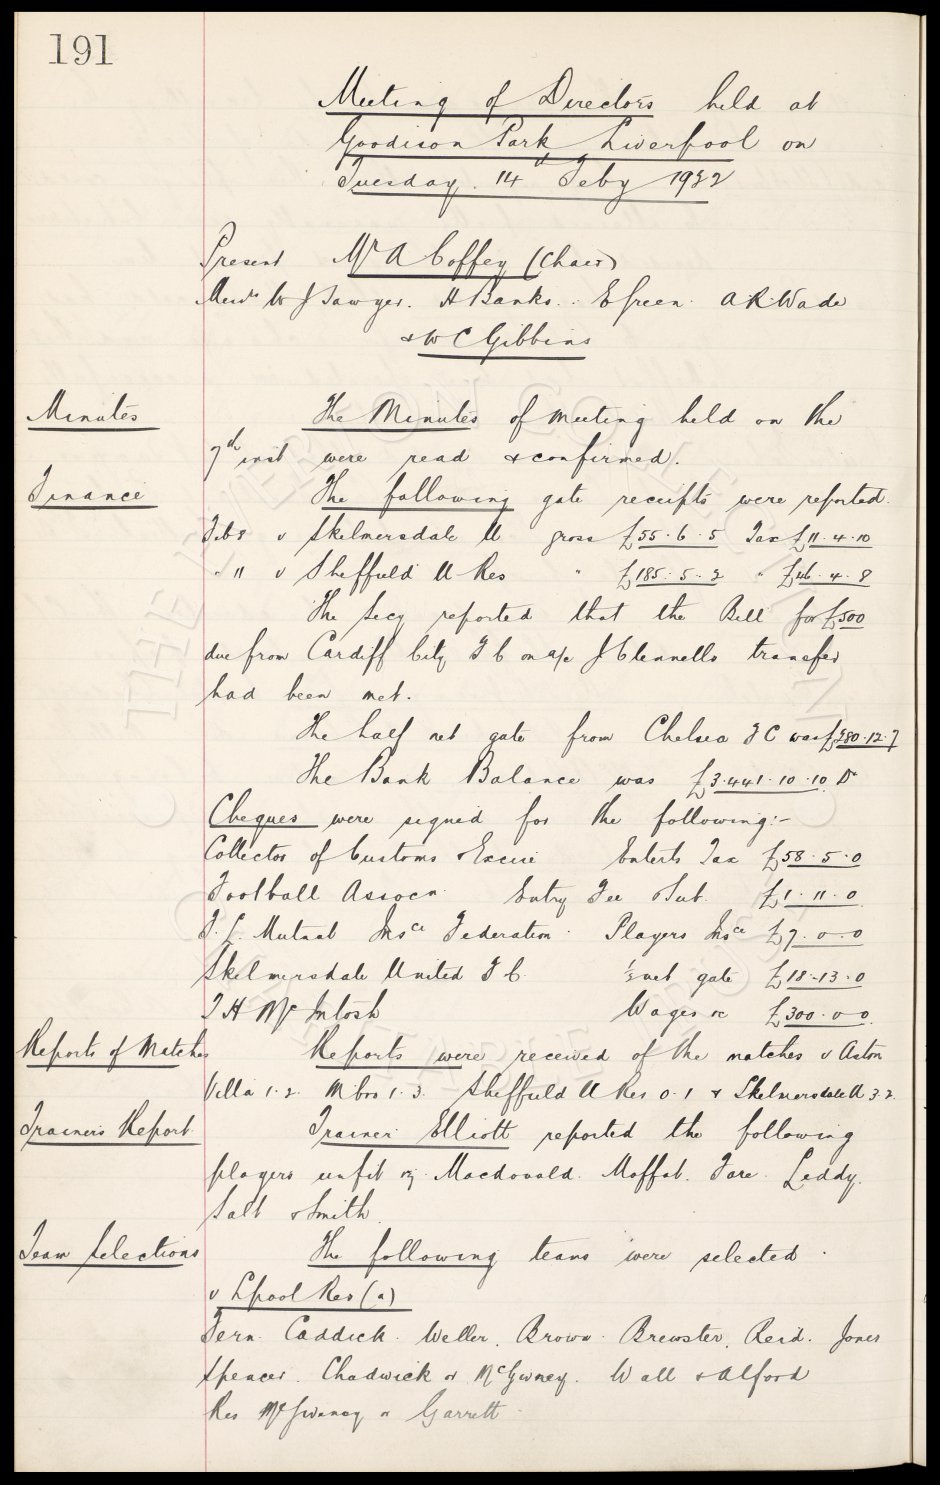 191
Meeting of Directors held at
Goodison Park Liverpool on
Tuesday 14th Feby 1922
Present Mr A Coffey (Chair)
Messrs W J Sawyer. H Banks. E Green. A R Wade
& W C Gibbins
Minutes The Minutes of meeting held on the
7th inst were read & confirmed.
Finance The following gate receipts were reported.
Feb 8 v Skelmersdale U gross £55.6.5 Tax £11.4.10
" 11 v Sheffield U Res " £185.5.2 " £46.4.8
The Secy reported that the Bill for £500
due from Cardiff City F C on a/c J Clennells transfer
had been met.
The half net gate from Chelsea F C was £780.12.7
The Bank Balance was £3.441.10.10 Dr
Cheques were signed for the following:-
Collector of Customs & Excise Enterts Tax £58.5.0
Football Assocn. Entry Fee & Sub. £1.11.0
F. L. Mutual Insce Federation. Players Insce £7.0.0
Skelmersdale United F C. ½ net gate £18.13.0
T H McIntosh Wages &c £300.0.0
Reports of Matches Reports were received of the matches v Aston
Villa 1.2. M'bro 1.3. Sheffield U Res 0.1 & Skelmersdale U 3.2.
Trainers Report Trainer Elliott reported the following
players unfit viz. Macdonald. Moffat. Fare. Leddy.
Salt & Smith
Team Selections The following teams were selected
v Lpool Res (a)
Fern. Caddick. Weller. Brown. Brewster. Reid. Jones
Spencer. Chadwick or McGivney. Wall & Alford
Res McGivney or Garrett